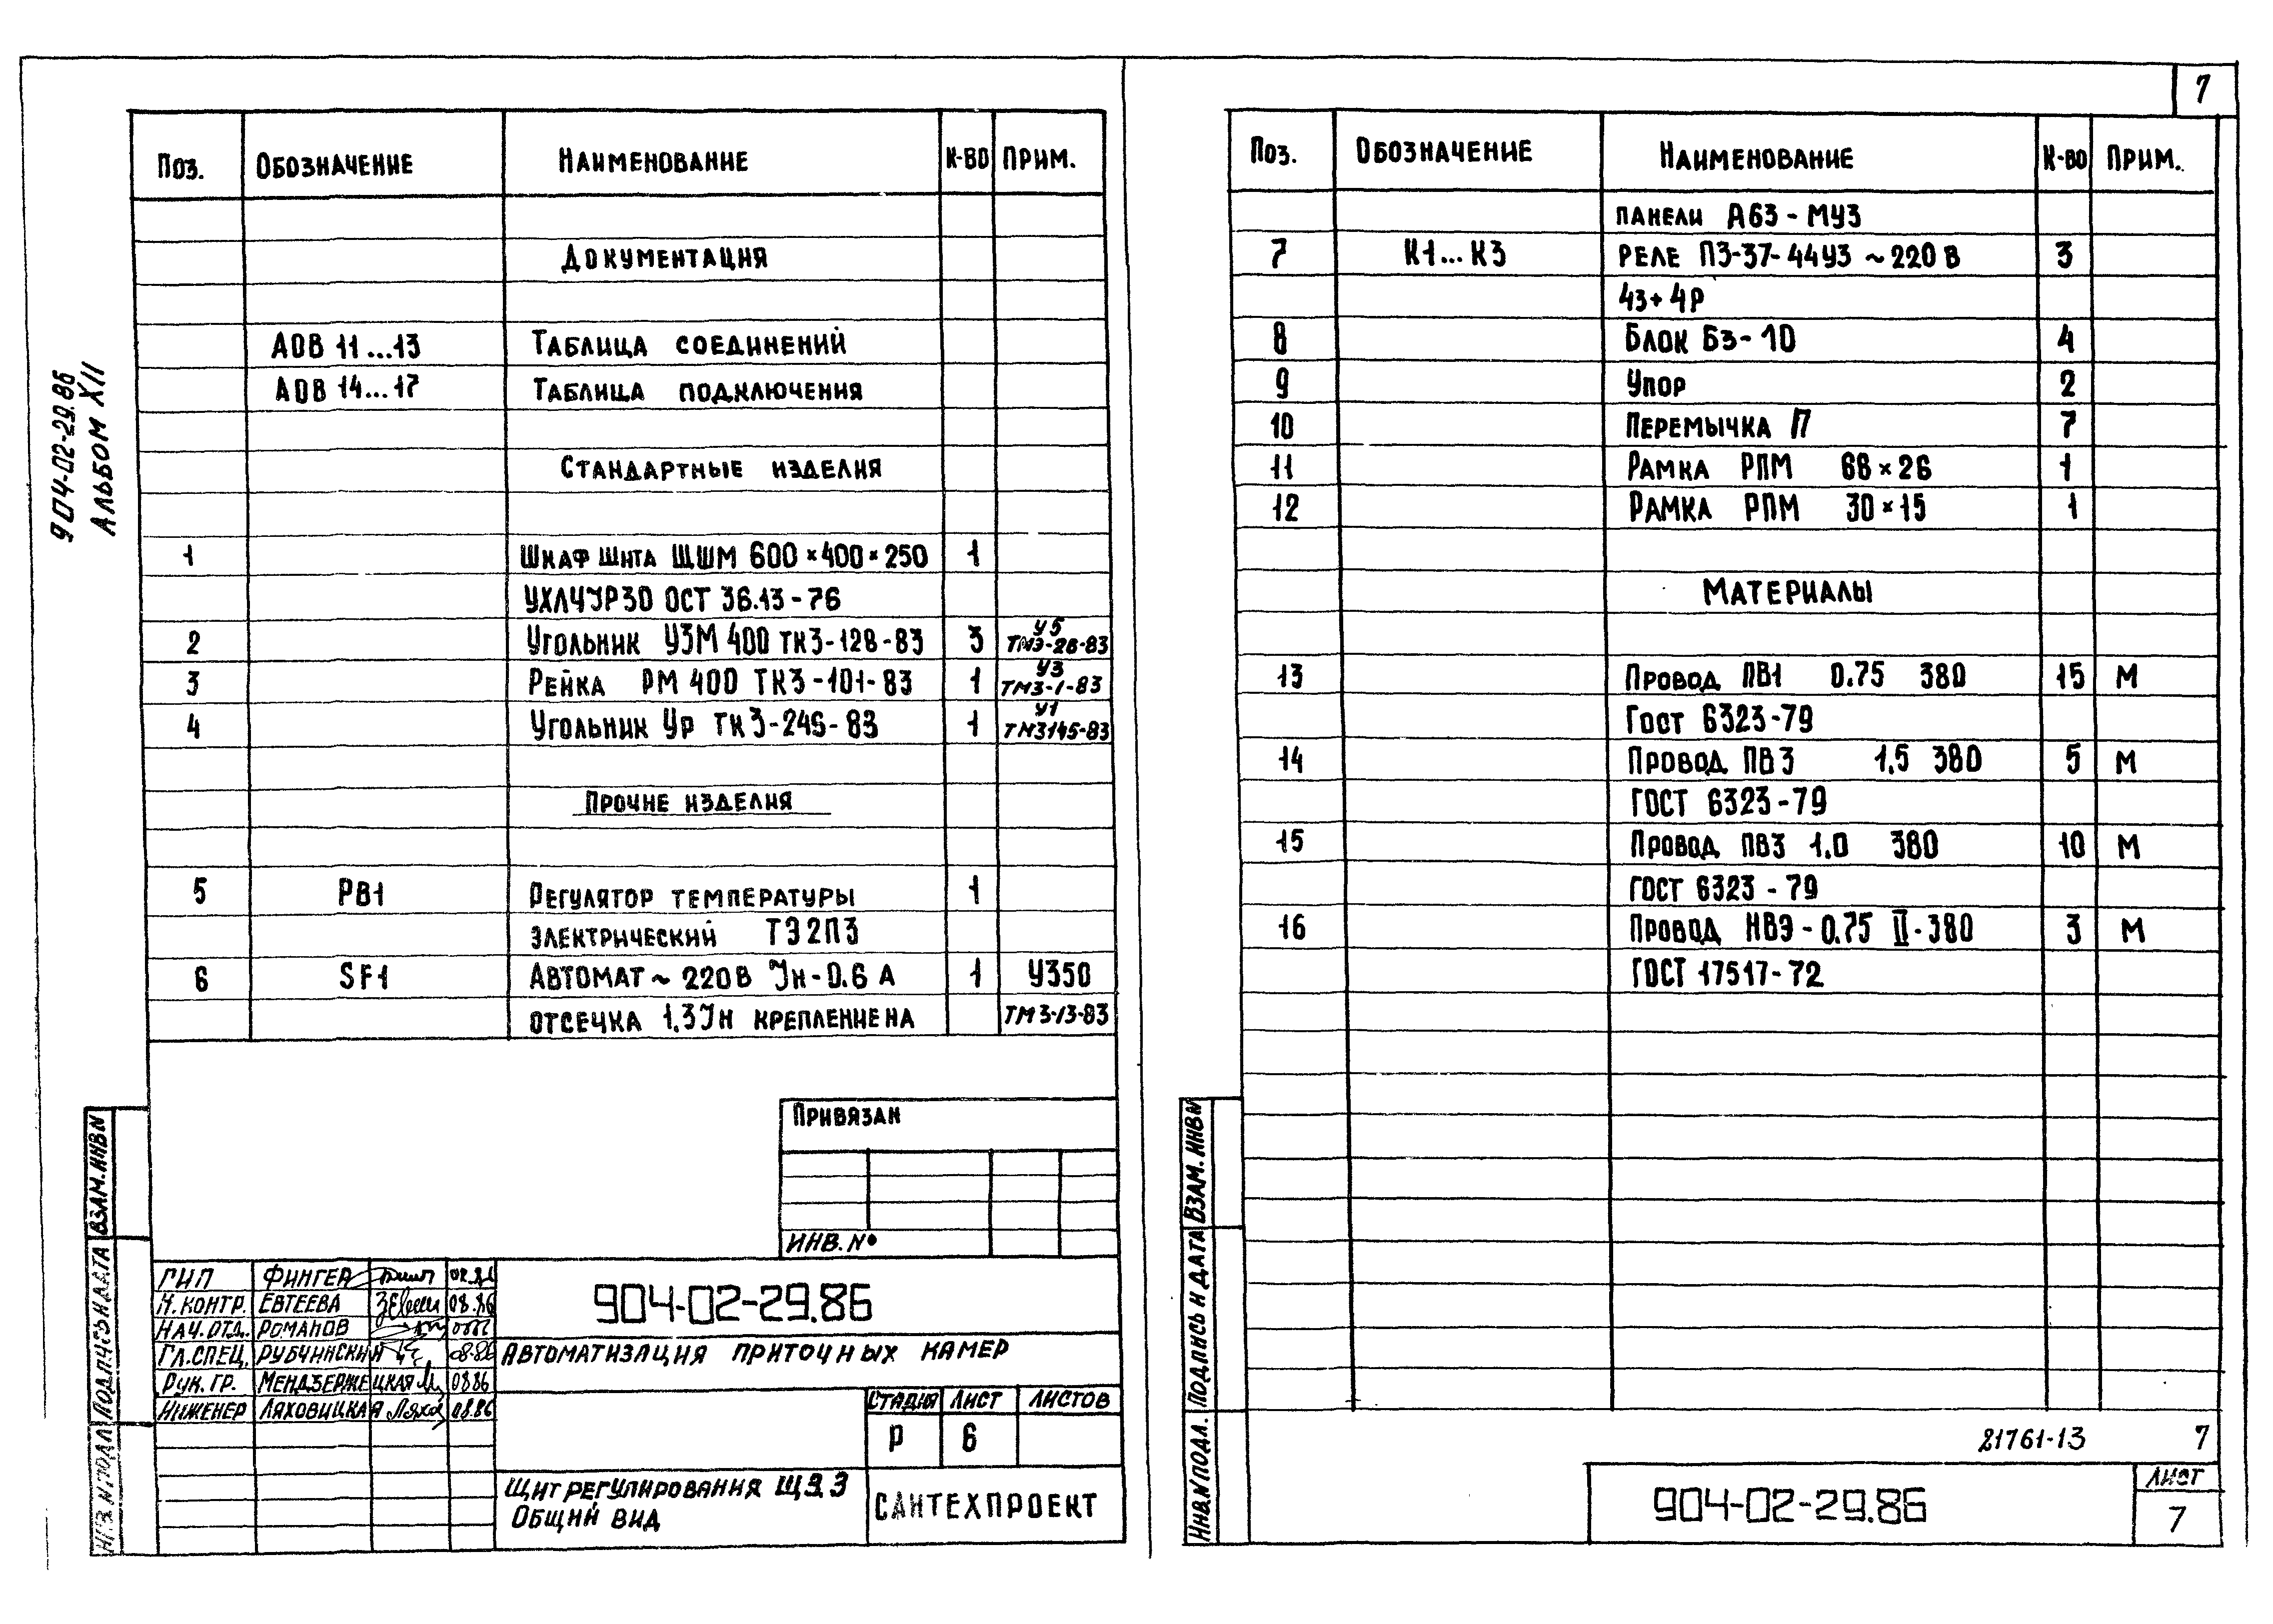 904-02-29.86
Альбом XII
Поз. Обозначение Наименование К-во Прим.
Документация
АОВ 11...13 Таблица соединений
АОВ 14...17 Таблица подключения
Стандартные изделия
1 Шкаф щита ЩШМ 600×400×250 1
ОСТ 36.13-76
2 Угольник УЗМ 400 ТК3-128-83 3 У5 ТМ3-26-83
3 Рейка РМ 400 ТК3-101-83 1 У3 ТМ3-1-83
4 Угольник УР ТК3-245-83 1 У1 ТМ3145-83
Прочие изделия
5 РВ1 Регулятор температуры 1
электрический ТЭ2П3
6 SF1 Автомат ~ 220В Jн-0.6 А 1 У350
отсечка 1,3Jн крепление на ТМ3-13-83
Привязан
ИНВ. №
ГИП Фингер
Н. контр. Евтеева 08.86
Нач. отд. Романов
Гл. спец. Рубчинский 08.86
Рук. гр. Мендзержецкая 08 86
Инженер Ляховицкая 08.86
904-02-29.86
Автоматизация приточных камер
Стадия Лист Листов
Р 6
Щит регулирования ЩЭ.3
Общий вид
САНТЕХПРОЕКТ
Взам. инв N
Подпись и дата
Инв. N подл
7
Поз. Обозначение Наименование К-во Прим.
панели А63-МУ3
7 К1...К3 Реле ПЭ-37-44У3 ~220 В 3
4з+4р
8 Блок БЗ-10 4
9 Упор 2
10 Перемычка П 7
11 Рамка РПМ 66×26 1
12 Рамка РПМ 30×15 1
Материалы
13 Провод ПВ1 0.75 380 15 М
Гост 6323-79
14 Провод ПВ3 1,5 380 5 М
ГОСТ 6323-79
15 Провод ПВ3 1.0 380 10 М
ГОСТ 6323-79
16 Провод НВЭ-0.75 II-380 3 М
ГОСТ 17517-72
Взам. инв N
Подпись и дата
Инв. N подл.
21761-13 7
904-02-29.86
Лист
7